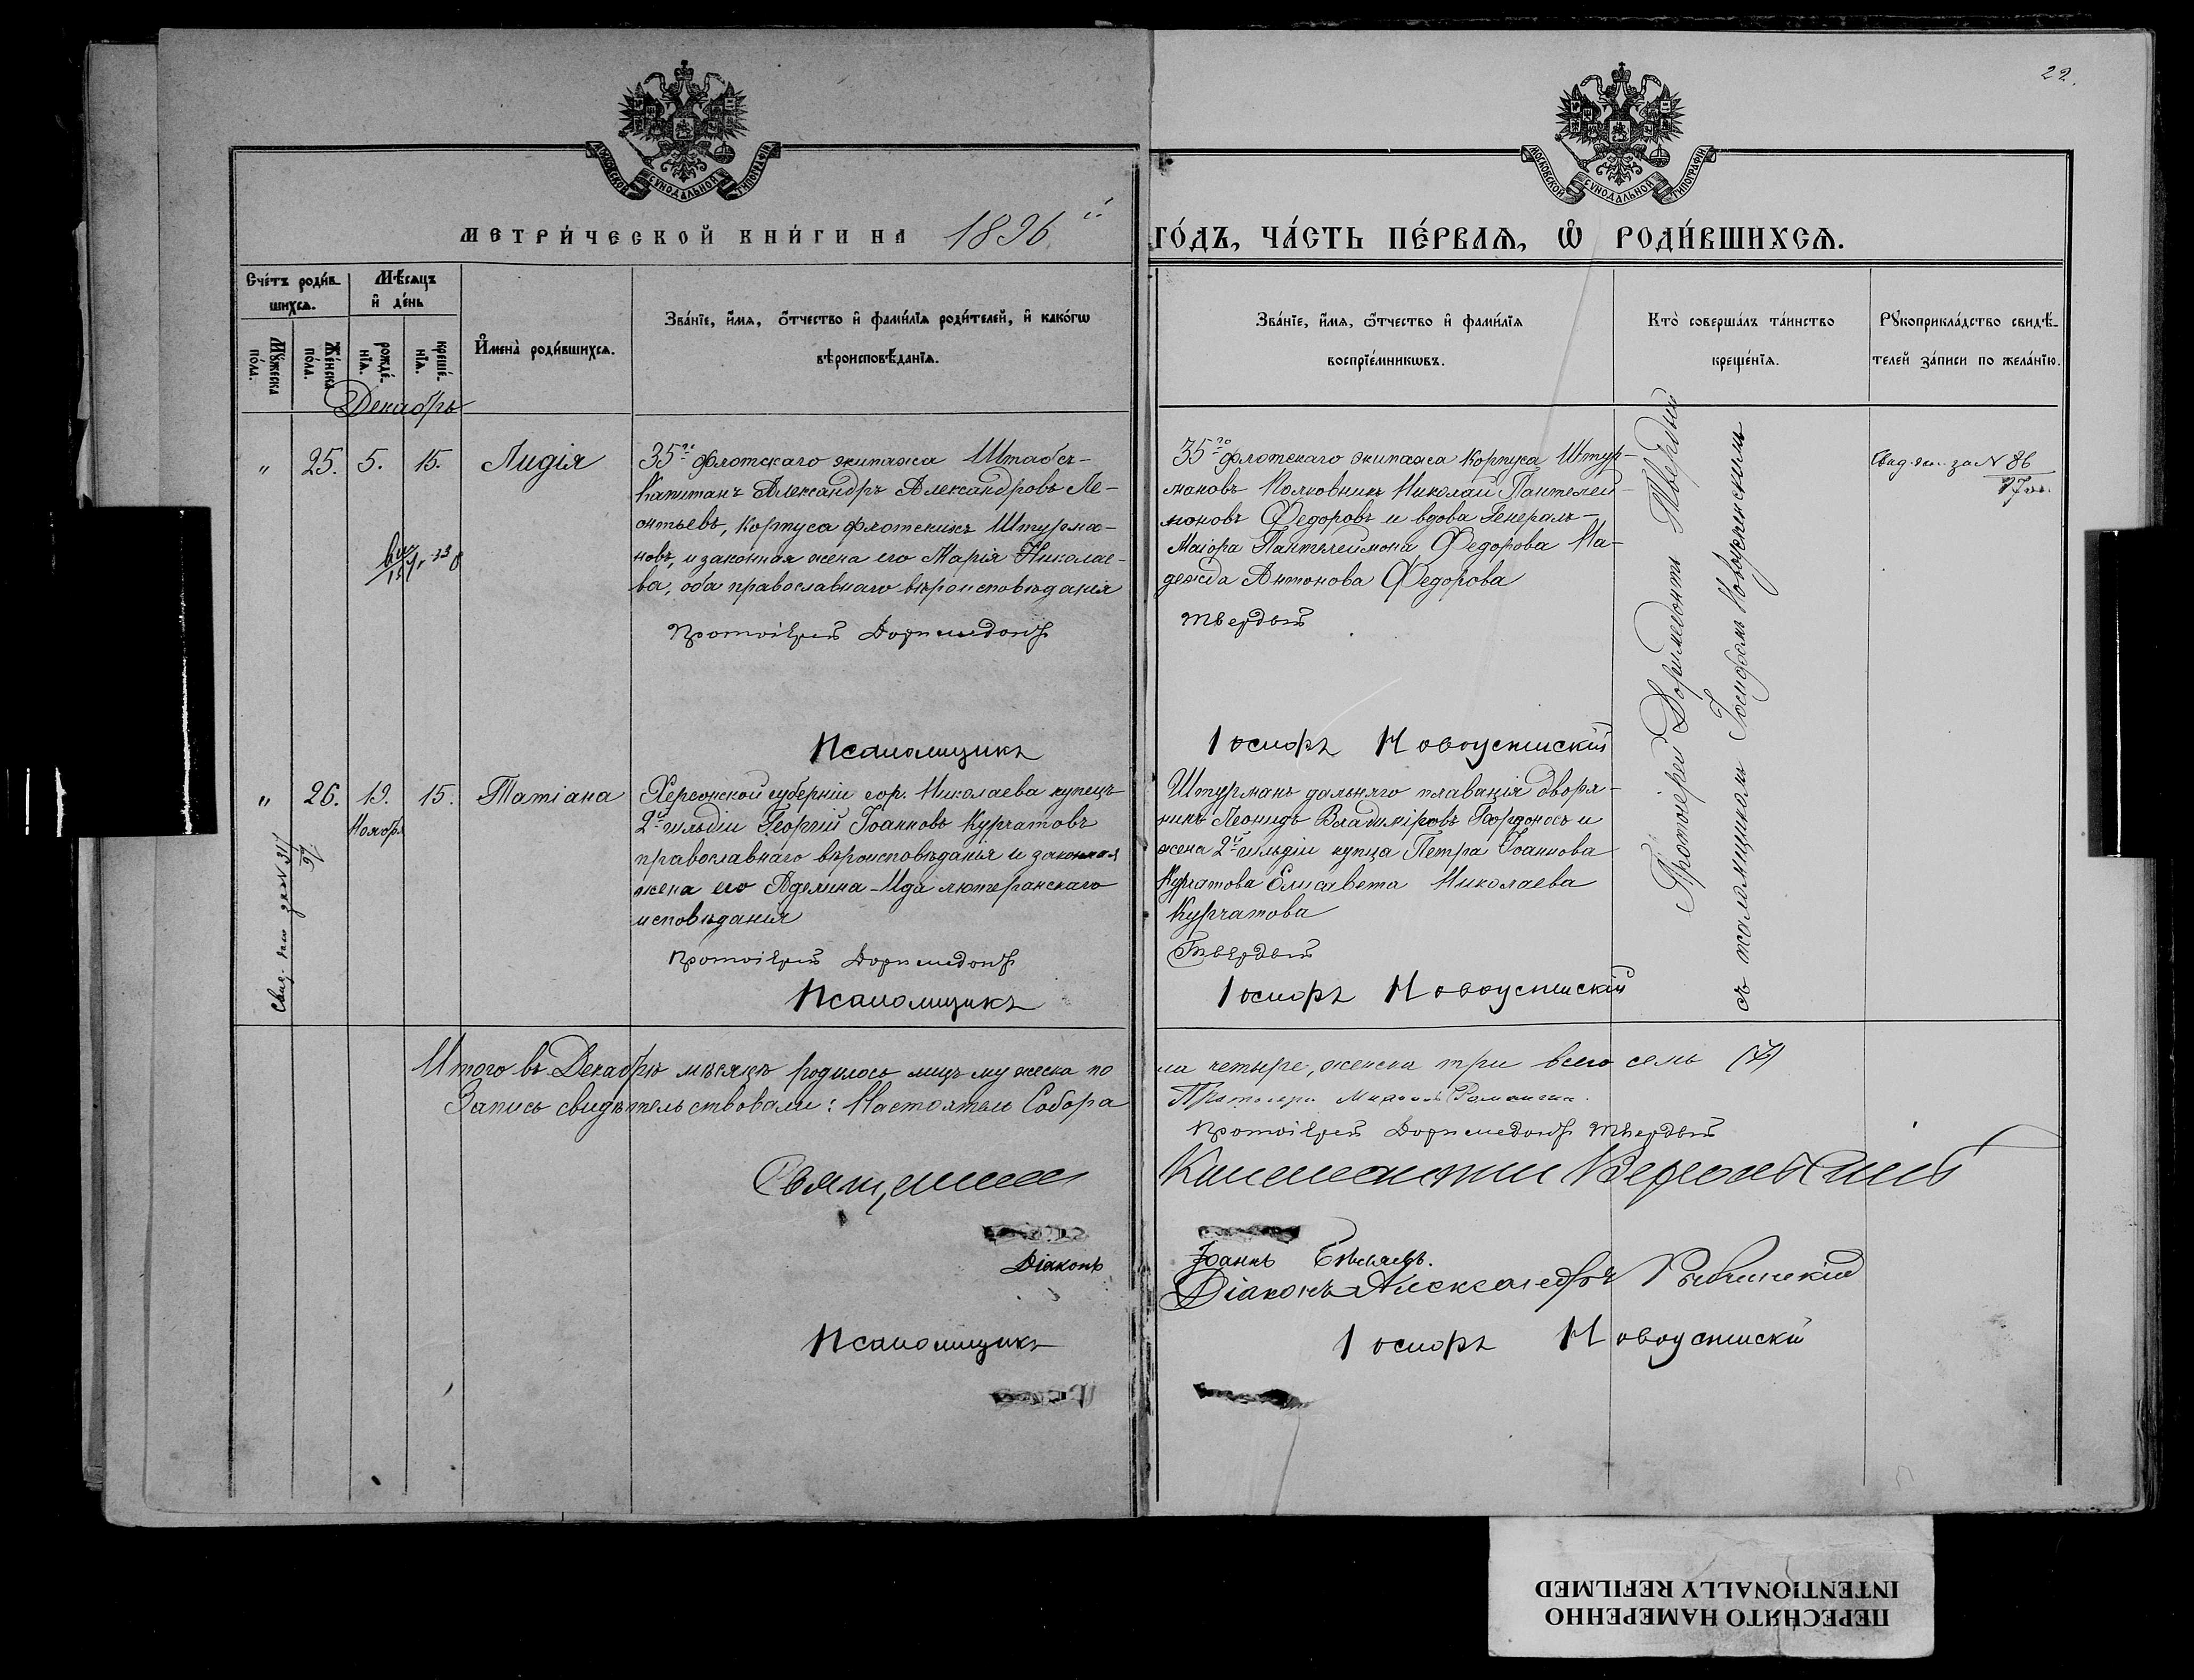 22.
МОСКОВСКОЙ СѴНОДАЛЬНОЙ ТИПОГРАФІИ
МОСКОВСКОЙ СѴНОДАЛЬНОЙ ТИПОГРАФІИ
МЕТРИ́ЧЕСКОЙ КНИ́ГИ НА 1896 й
ГО́ДЪ, ЧА́СТЬ ПЕ́РВАЯ, Ѽ РОДИ́ВШИХСЯ.
Сче́тъ роди́в-
шихся.
Му́жеска по́ла.
Же́нска по́ла.
Мѣ́сяцъ
и де́нь
рожде́-
нія.
креще́-
нія.
Имена̀ роди́вшихся.
Зва́ніе, и́мя, о́тчество и фами́лія роди́телей, и како́гѡ
вѣроисповѣ́данія.
Зва́ніе, и́мя, ѻ́тчество и фами́лія
воспріе́мникѡвъ.
Кто̀ соверша́лъ та́инство
креще́нія.
Рукоприкла́дство свидѣ́-
телей за́писи по жела́нію.
Декабрь
" 25. 5. 15. Лидія
35го флотскаго экипажа Штабсъ-
Капитанъ Александръ Александровъ Ле-
онтьевъ, Корпуса флотскихъ Штурма-
новъ, и законная жена его Марія Николае-
ва, оба православнаго вѣроисповѣданія
Протоіерей Доримедонтъ
Псаломщикъ
35го флотскаго экипажа Корпуса Штур-
мановъ Полковникъ Николай Пантелей-
моновъ Федоровъ и вдова Генералъ-
Маіора Пантелеймона Федорова На-
дежда Антонова Федорова
Твердый
Іосифъ Новоуспискій
Протоіерей Доримедонтъ Твердый
съ псаломщикомъ Іосифомъ Новоуспенскимъ
Свид. за N 86
" 26. 19. 15. Татіана
Ноябр.
Херсонской губерніи гор. Николаева купецъ
2й гильдіи Георгій Іоанновъ Курчатовъ
православнаго вѣроисповѣданія и законная
жена его Аделина-Ида лютеранскаго
исповѣданія
Протоіерей Доримедонтъ
Псаломщикъ
Штурманъ дальняго плаванія дворя-
нинъ Леонидъ Владиміровъ и
жена 2й гильдіи купца Петра Іоаннова
Курчатова Елисавета Николаева
Курчатова
Твердый
Іосифъ Новоуспискій
Итого въ Декабрѣ мѣсяцѣ родилось лицъ мужеска по
ла четыре, женска три всего семь (7)
Запись свидѣтельствовали: Настоятель Собора
Протоіерей
Протоіерей Доримедонтъ Твердый
Священникъ
Діаконъ
Іоаннъ
Діаконъ Александръ
Псаломщикъ
Іосифъ Новоуспискій
ПЕРЕСНЯТО НАМЕРЕННО
INTENTIONALLY REFILMED